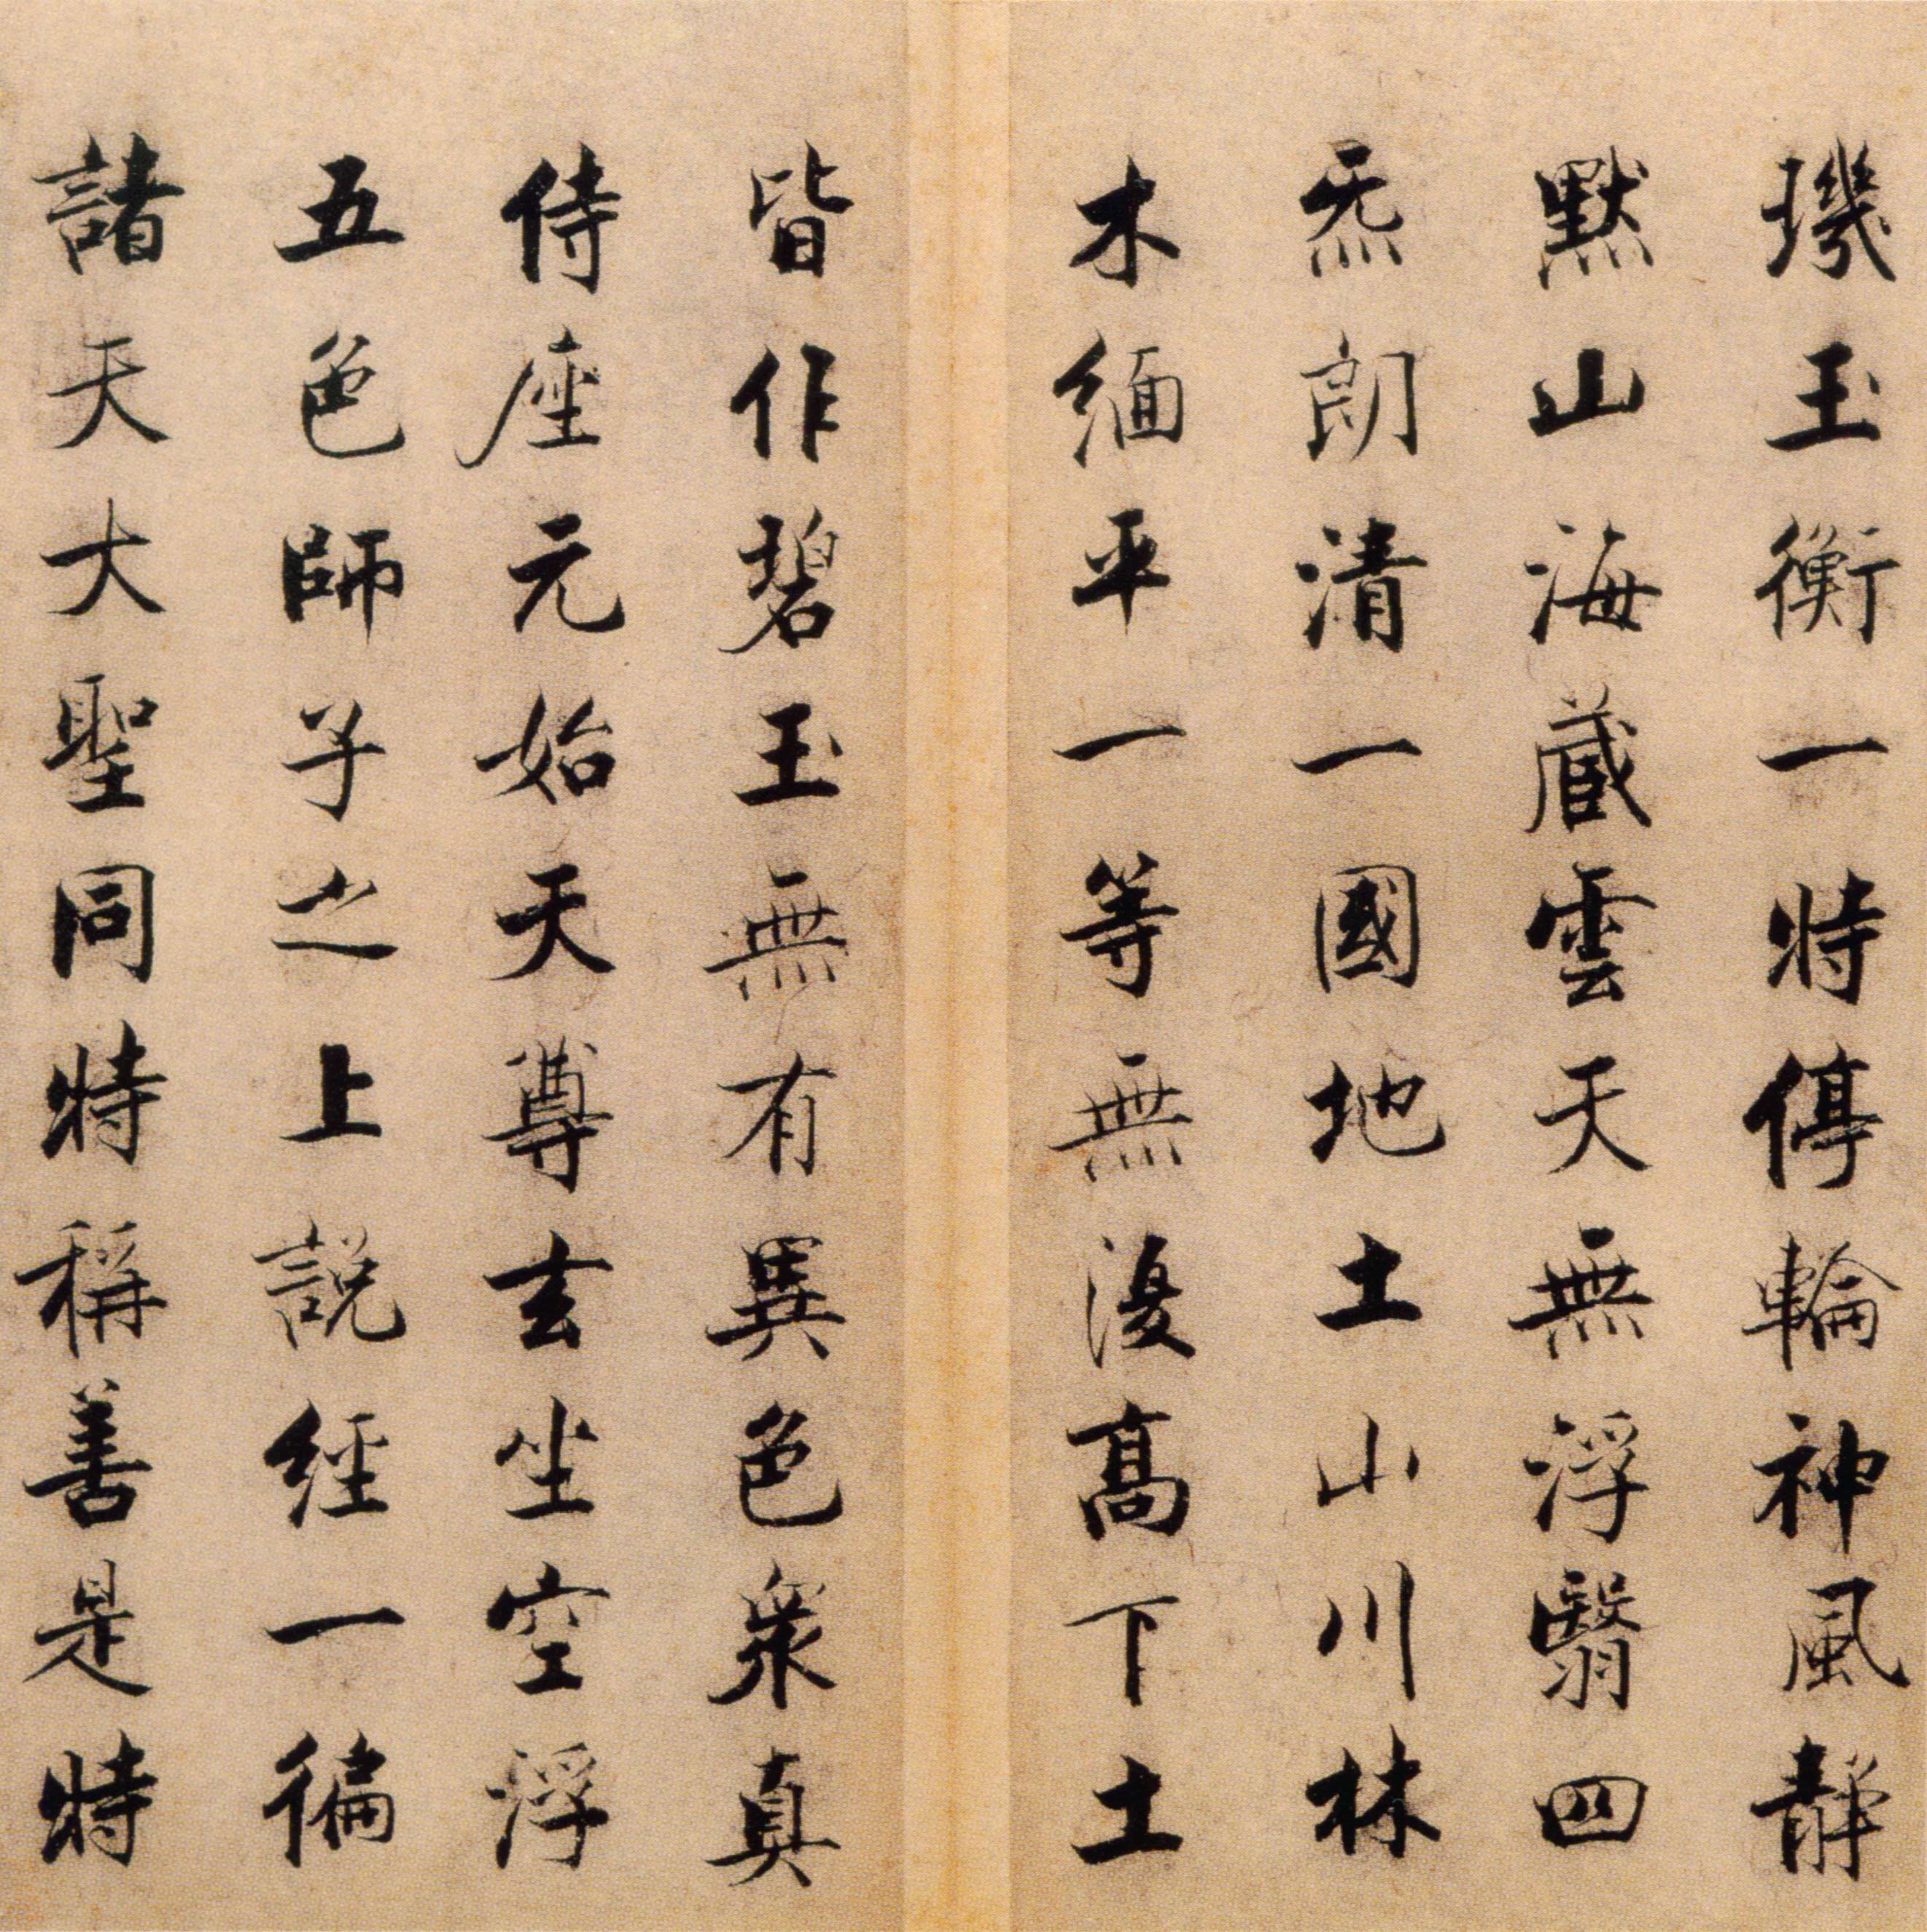 璣玉衡一時停輪神風静
默山海蔵雲天無浮翳四
炁朗清一國地土山川林
木緬平一等無復高下土
皆作碧玉無有異色衆真
侍座元始天尊玄坐空浮
五色師子之上説經一徧
諸天大聖同時稱善是時